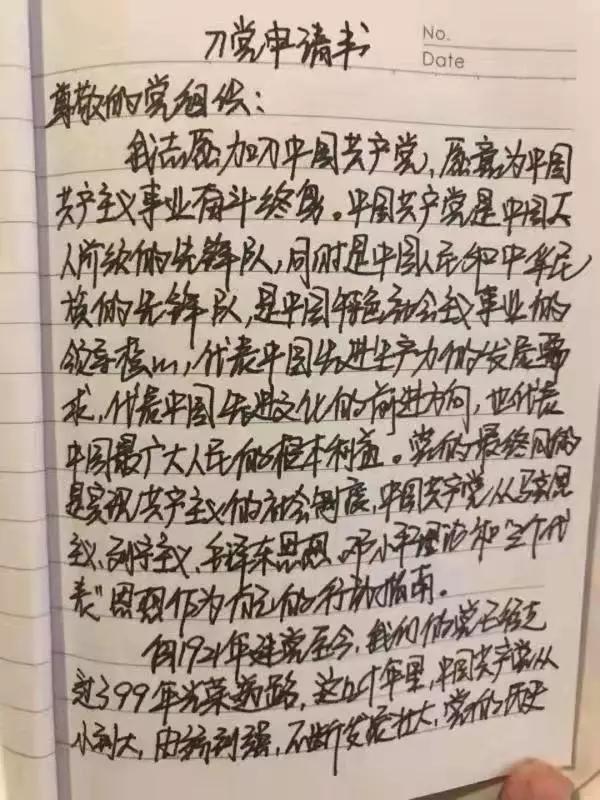 入党申请书
No.
Date
尊敬的党组织：
我志愿加入中国共产党，愿意为中国
共产主义事业奋斗终身。中国共产党是中国工
人阶级的先锋队，同时是中国人民和中华民
族的先锋队，是中国特色社会主义事业的
领导核心，代表中国先进生产力的发展要
求，代表中国先进文化的前进方向，也代表
中国最广大人民的根本利益。党的最终目的
是实现共产主义的社会制度，中国共产党从马克思
主义、列宁主义、毛泽东思想、邓小平理论和"三个代
表"思想作为自己的行动指南。
自1921年建党至今，我们的党已经走
过了99年光荣道路，这几十年里，中国共产党从
小到大，由弱到强，不断发展壮大，党的历史